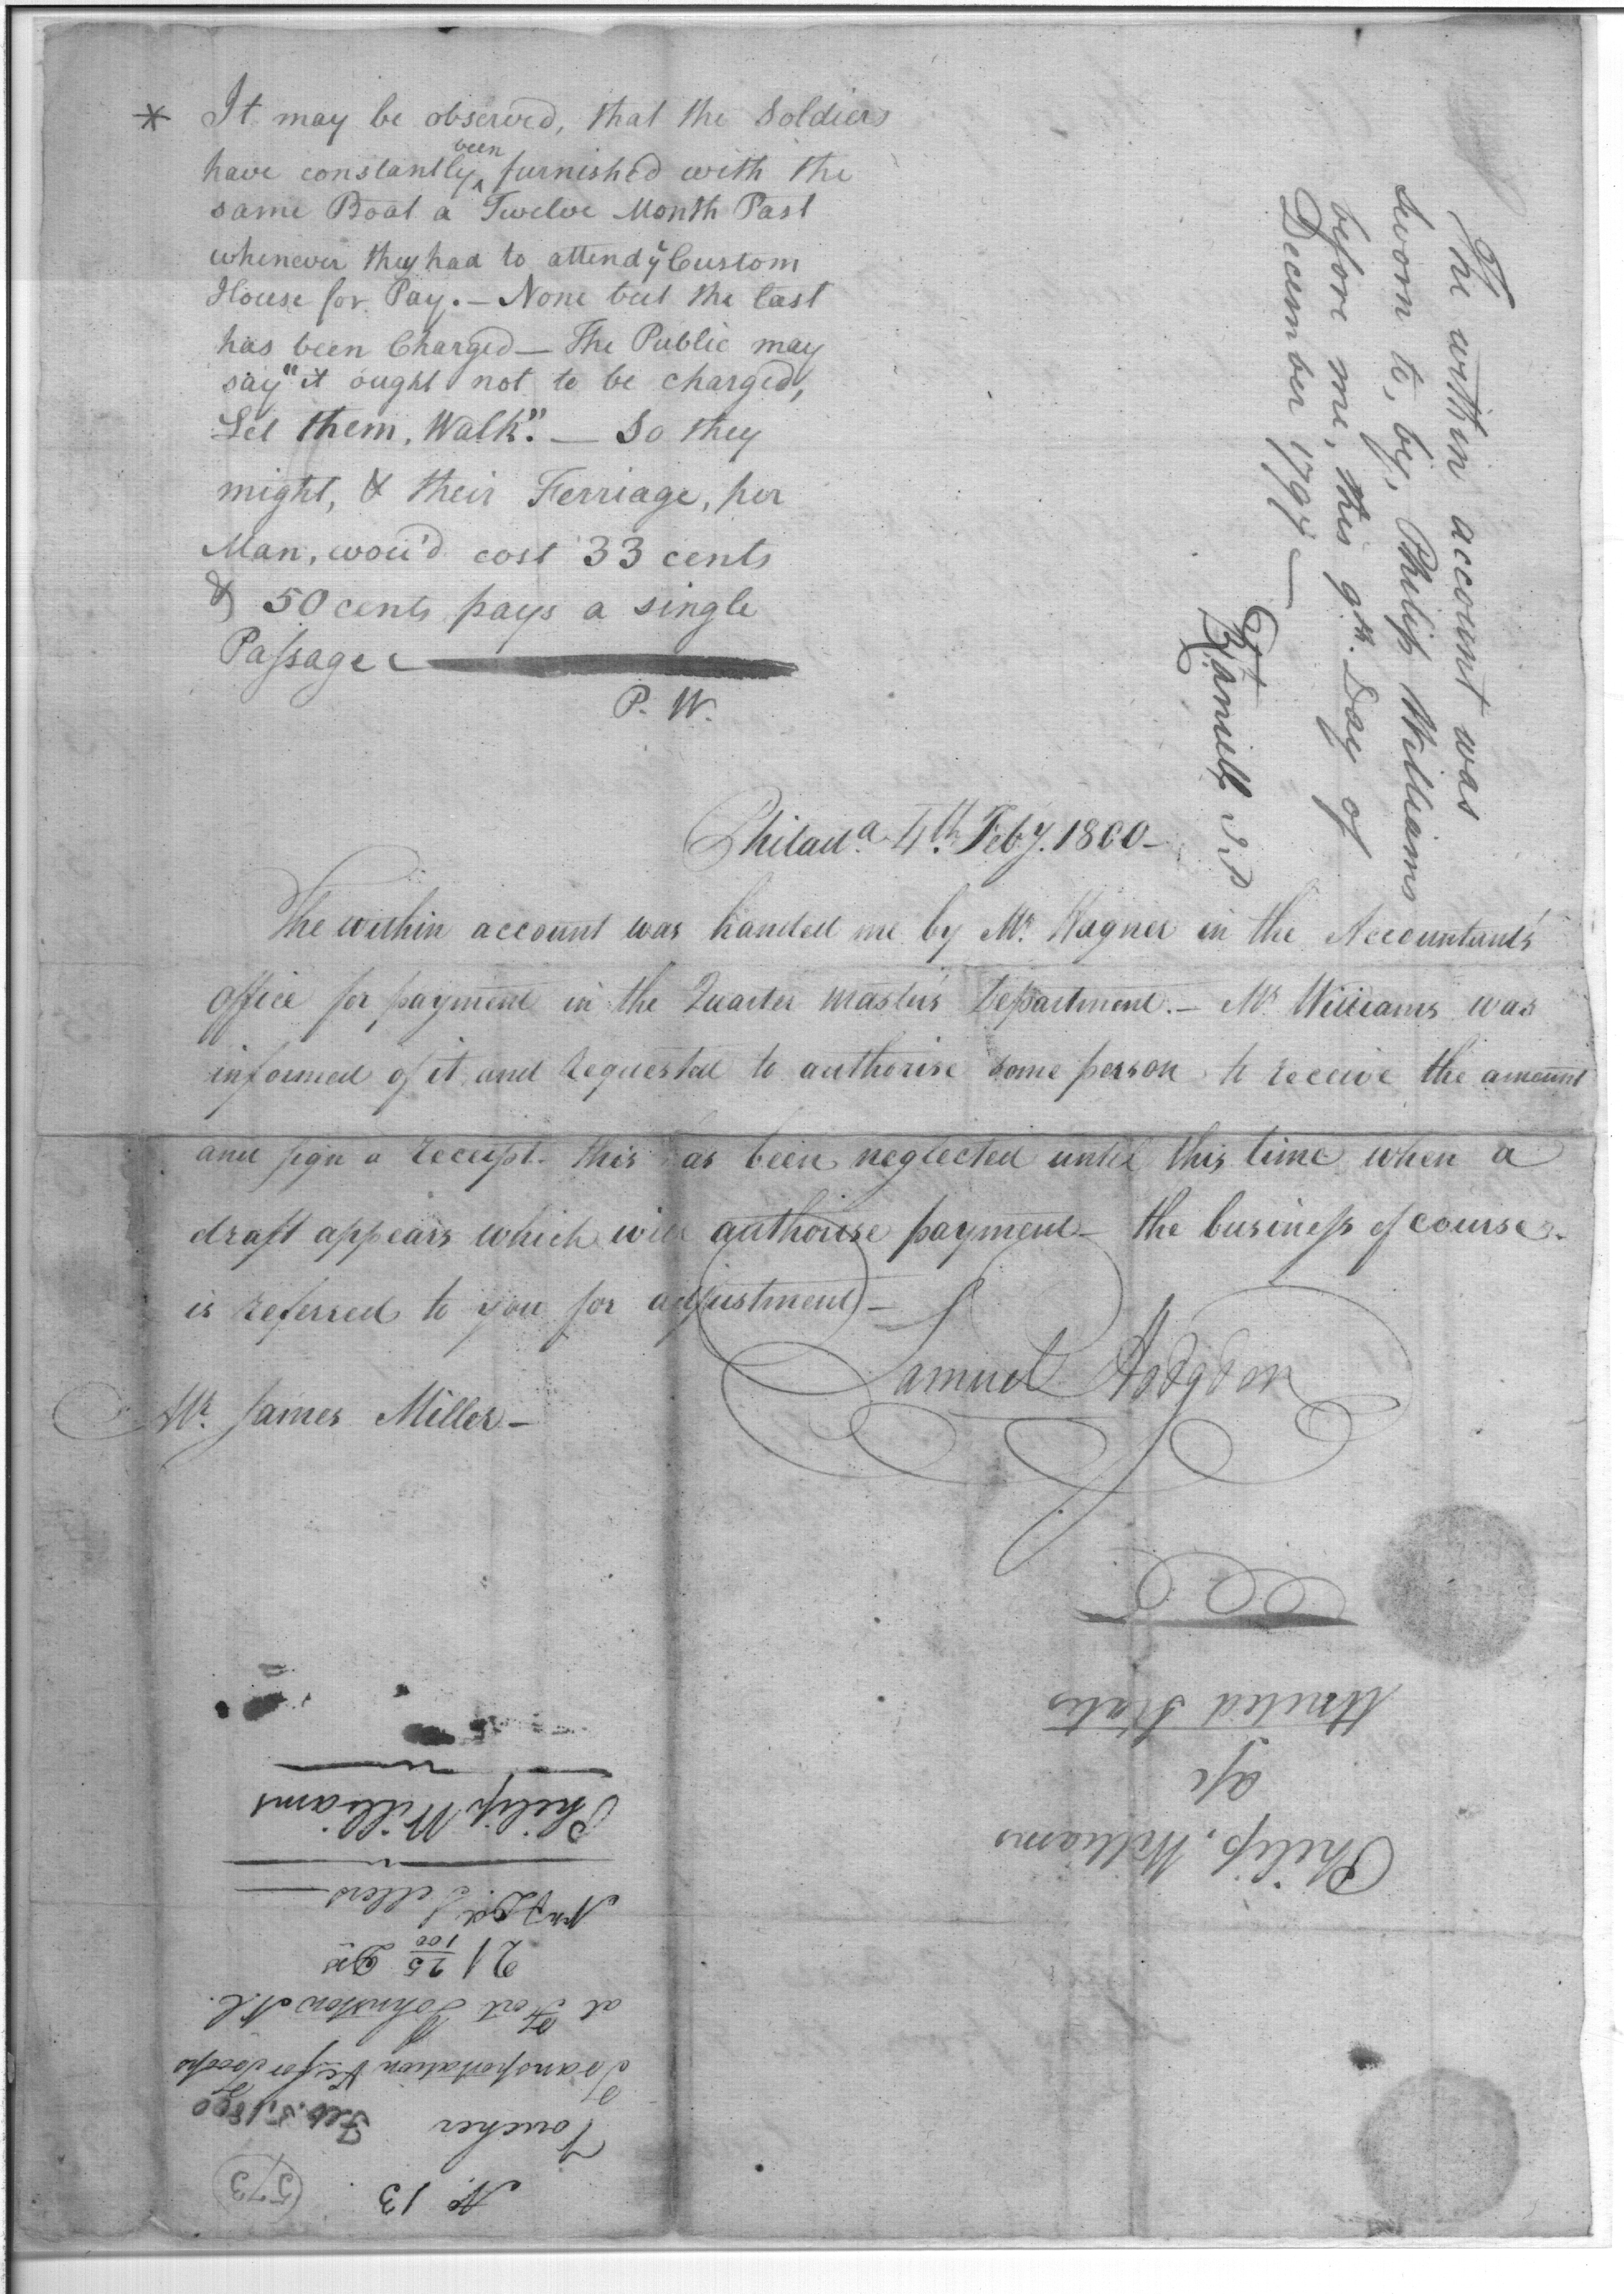 * It may be observed, that the Soldiers
have constantly been furnished with the
same Boat a Twelve Month Past
whenever they had to attend ye Custom
House for Pay. — None but the last
has been Charged — The Public may
say "it ought not to be charged,
Let them, Walk". — So they
might, & their Ferriage, per
Man, wou'd cost 33 cents
& 50 cents pays a single
Passage
P. W.
The within account was
sworn to, by, Philip Williams
before me, this 9th. Day of
December 1797 —
J.P
Philada. 4th. Feby. 1800 —
The within account was handed me by Mr. Hagner in the Accountants'
office for payment in the Quarter master's Department. — Mr. Williams was
informed of it and requested to authorise some person to receive the amount
and sign a receipt. this has been neglected until this time when a
draft appears which will authorise payment — the business of course
is referred to you for adjustment —
Samuel Hodgdon
Mr. James Miller —
Philip, Williams
a/c
United States
No. 13
573
Voucher Feb. 5, 1800
Transportation &c for troops
at Fort Johnston N.C.
21 25/100 Drs
Philip Williams